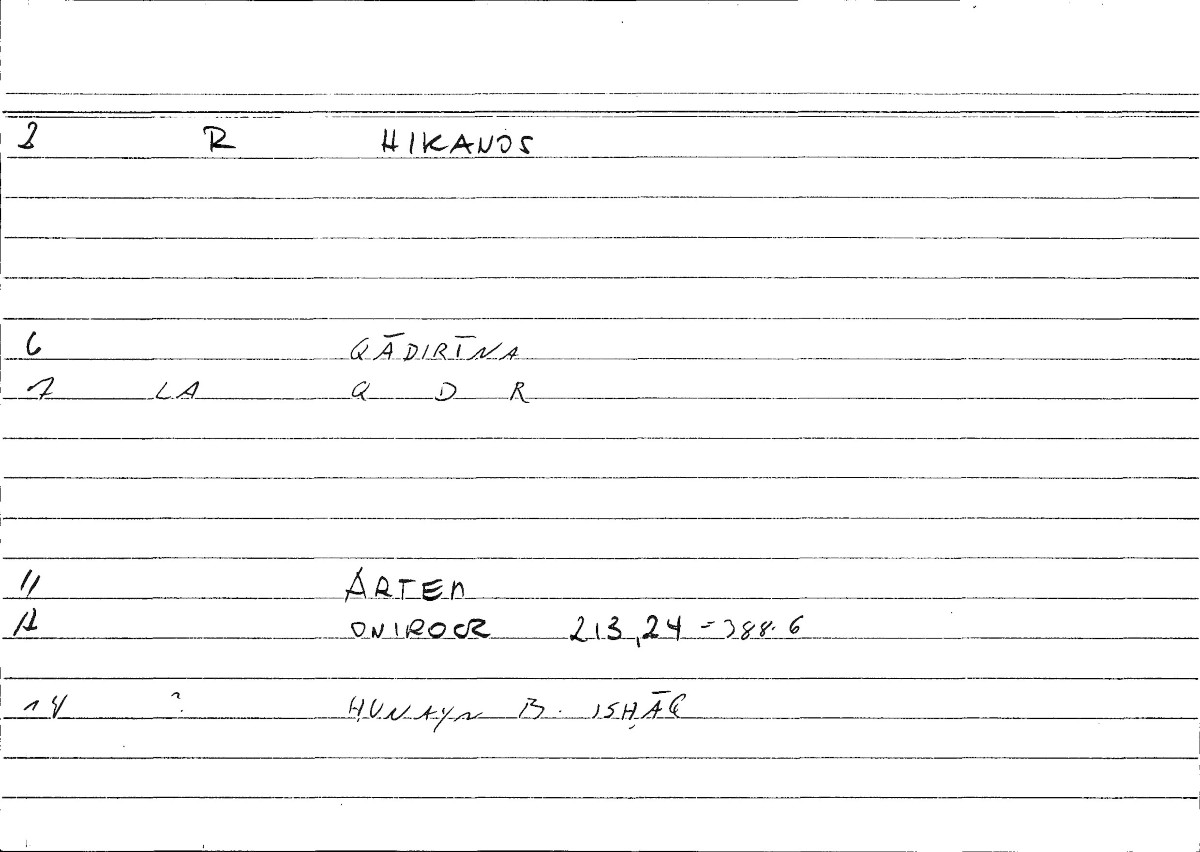 3 R HIKANOS
6 QĀDIRĪNA
7 LA Q D R
11 ARTEM
12 ONIROCR 213,24 = 388.6
14 ? ḤUNAYN B. ISḤĀQ